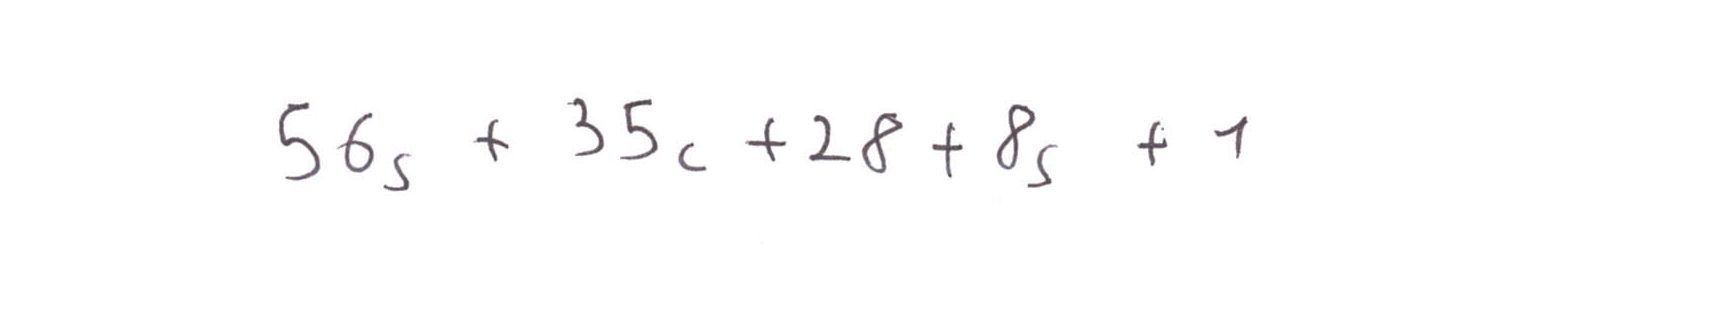 56ₛ + 35c + 28 + 8ₛ + 1